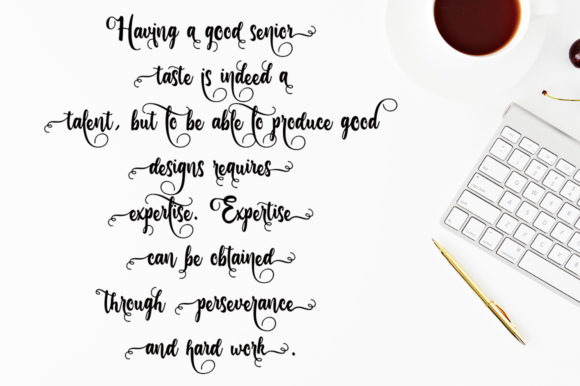 Having a good senior
taste is indeed a
talent, but to be able to produce good
designs requires
expertise. Expertise
can be obtained
through perseverance
and hard work.